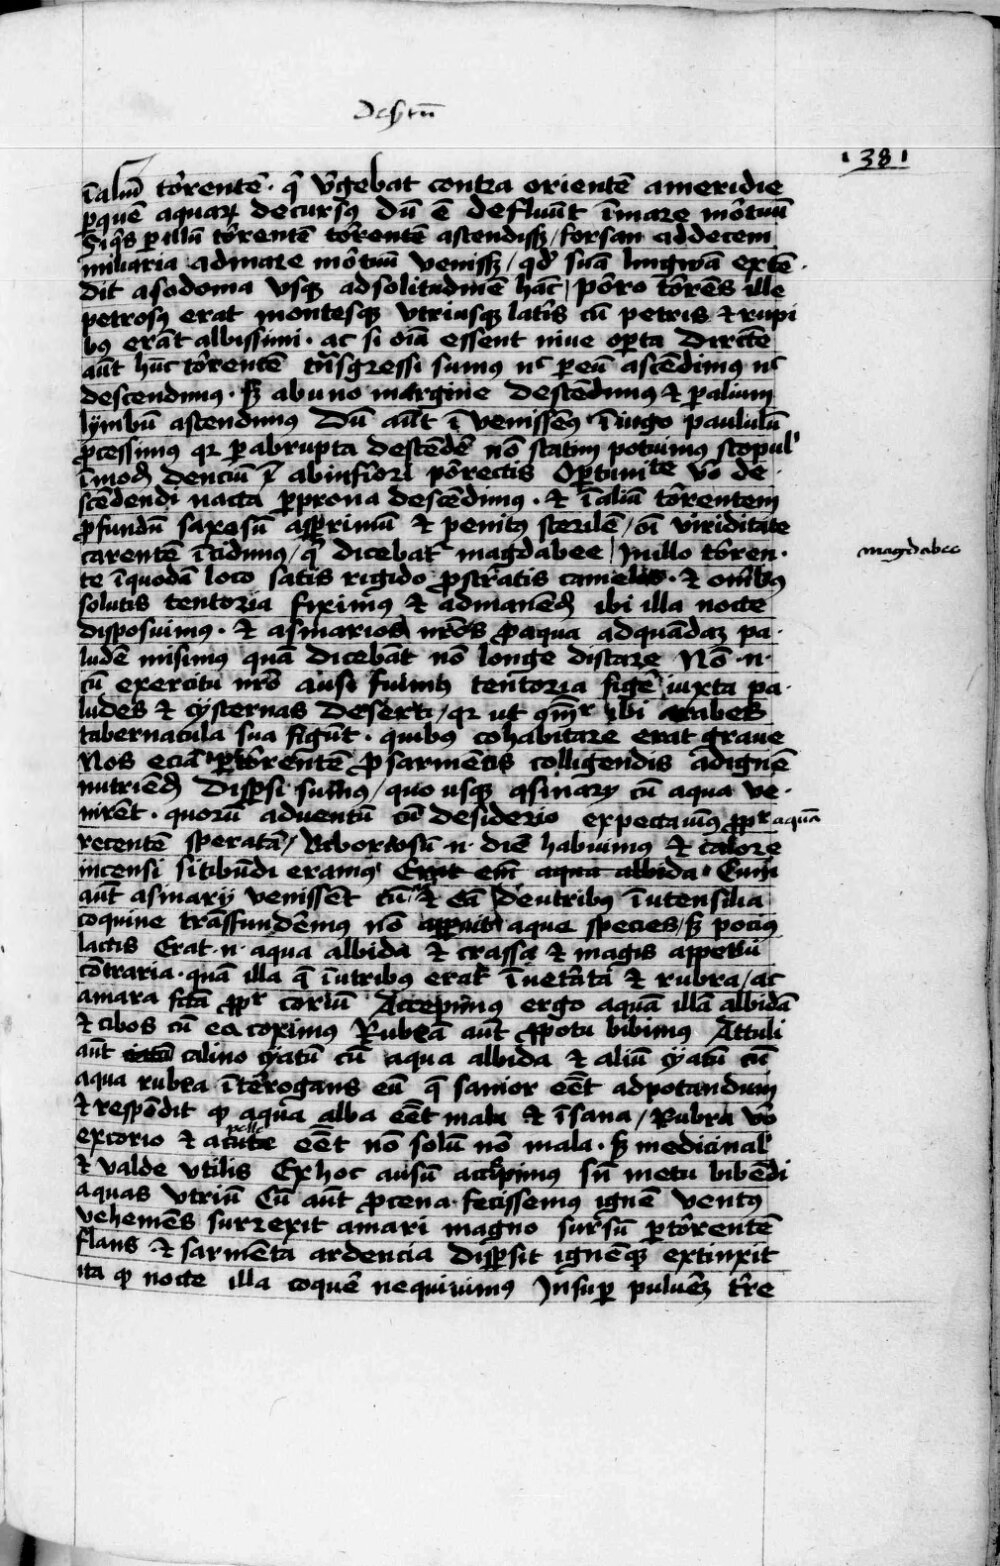 Desertū
· 38 ·
ī aliū torrentē · q̄ v̄gebat contra orientē a meridie
per quē aquarꝝ decursꝰ dū ē defluūt ī mare mortuū
Si q̄s per illū torrentē torrentē ascendissꝫ / forsan ad decem
miliaria ad mare mortuū venissꝫ / qd̓ suā lingwā extē ·
dit a sodoma vsqꝫ ad solitudinē hāc / porro torrēs ille
petrosꝰ erat montesqꝫ vtriusqꝫ lateris cū petris et rupi
bꝰ erāt albissimi · ac si oīa essent niue operta Directe
aūt hūc torrentē trāsgressi sumus nc̄ per eū ascēdimus nc̄
descendimus · sꝫ ab uno margine descēdimus et per alium
lymbū ascendimus Dū aūt ī venissēmꝰ ī iugo paululū
processimus qr per abrupta descēdē nō statim potuimus scopul̓
ī modū denciū ab inferiori porrectis Oportunite vo de ·
scēdendi nacta per prona descēdimus · et ī aliū torrentem
profundū saxosū asperrimū et penitꝰ sterilē / oī viriditate
carentē īcidimus / q̄ dicebat᷑ magdabee / In illo torren ·
te ī quodā loco satis rigido prostratis camelis · et omnibꝰ
solutis tentoria fiximus et ad manēdū ibi illa nocte
disposuimus · et asinarios nr̄os pro aqua ad quādaꝫ pa ·
ludē misimus quā dicebāt nō longe distare Nō · n ·
cū exercitu nr̄o ausi fuimꝰ tentoria figē iuxta pa ·
ludes et cysternas deserti / qr ut qm̄r ibi arabes
tabernacula sua figūt · quibus cohabitare erat graue
Nos eciā per torrentē pro sarmētis colligendis ad ignē
nutriēdū dispersi sumus / quo usqꝫ asinarij cū aqua ve ·
nirēt · quorū aduentū cū desiderio expectauimꝰ propr̄ aquā
recentē speratā / laborosū · n · diē habuimus et calore
incensi sitibūdi eramus Erat em̄ aqua albida · Cum
aūt asinarij venissēt cū et eā de utribus ī utensilia
coquine trāsfundēmus nō apparuit aque species / sꝫ pocius
lactis Erat · n · aqua albida et crassa et magis appetitui
cōtraria · quā illa q̄ ī utribus erat īueterata et rubra / ac
amara fcā propr̄ coriū Accepimus ergo aquā illā albidā
et cibos cū ea coximus Rubeā aūt pro potu bibimus Attuli
aūt calino cyatū cū aqua albida et aliū cyatū cū
aqua rubea īterrogans eū q̄ sanior eēt ad potandum
et respōdit ꝙ aqua alba eēt mala et īsana / Rubea vo
ex corio et a pelle eēt nō solū nō mala · sꝫ medicinal̓
et valde vtilis Ex hoc ausū accepimus sn̄ metu bibēdi
aquas vtriū Cū aūt pro cena · fecissemus ignē ventꝰ
vehemēs surrexit a mari magno sursū per torrentē
flans et sarmēta ardencia dispersit ignēqꝫ extinxit
ita ꝙ nocte illa coquē nequiuimus Insuper puluēꝫ tr̄e
magdabee